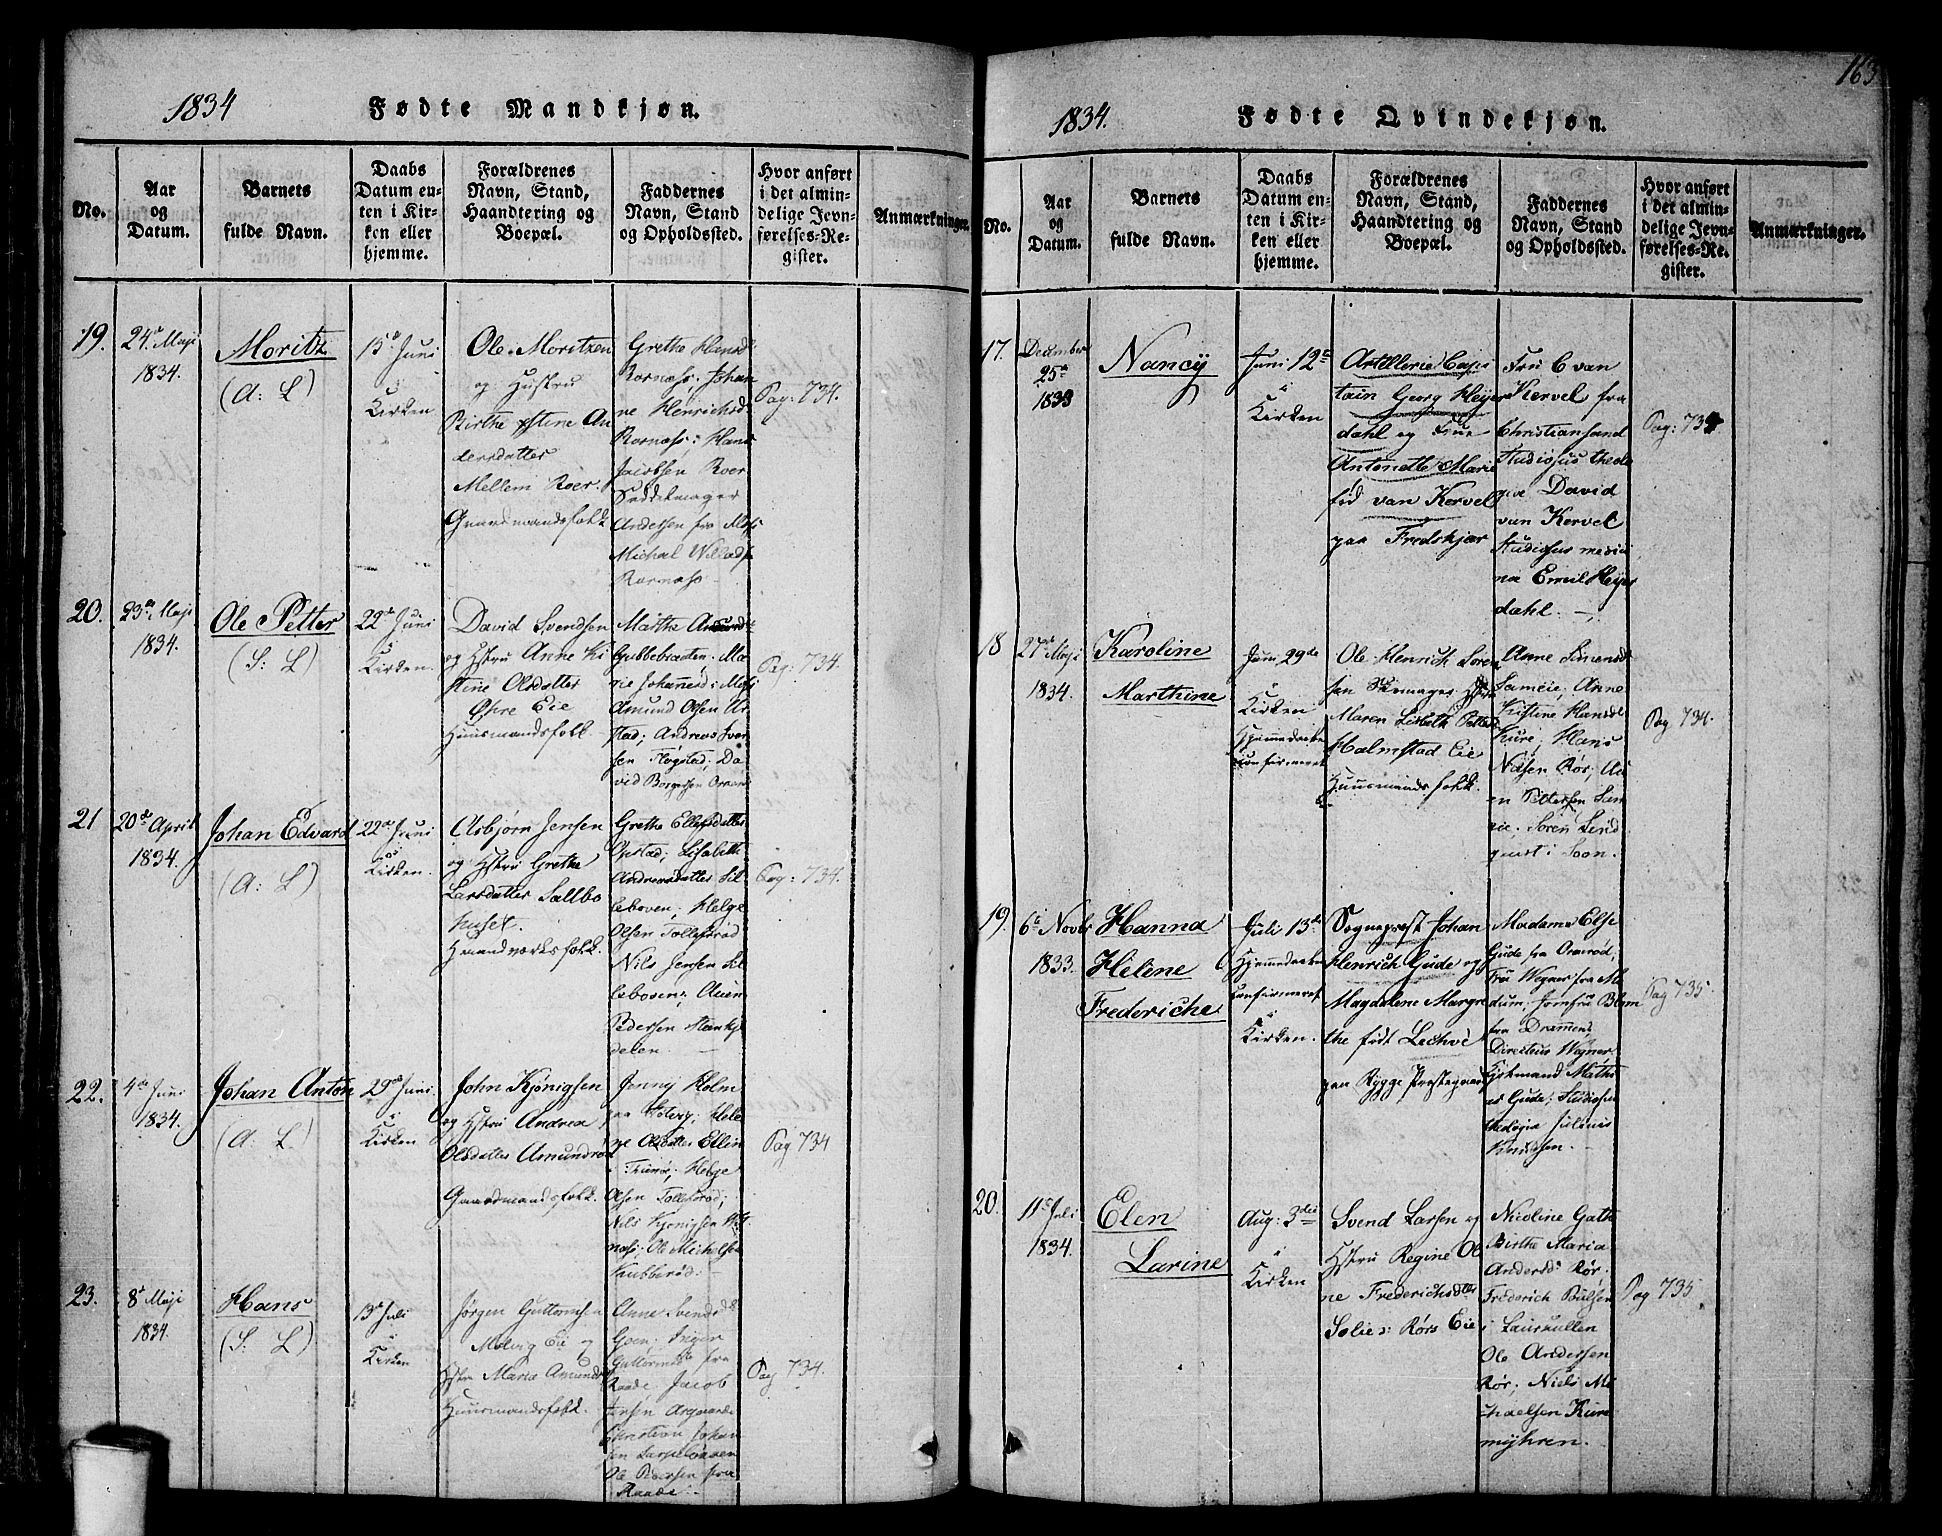 1834 Fødte Mandkjøn.
No.
Aar
og
Datum.
Barnets
fulde Navn.
Daabs
Datum en-
ten i Kir-
ken eller
hjemme.
Forældrenes
Navn, Stand,
Haandtering og
Boepæl.
Faddernes
Navn, Stand
og Opholdssted.
Hvor anført
i det almin-
delige Jevn-
førelses-Re-
gister.
Anmærkninger.
19.
24de Maji
1834.
Moritz
(A: L)
15de Juni
i
Kirken
Ole Moritzen
og Hustru
Birthe Kstine An
dersdatter
Mellem Roer.
Gaardmandsfolk
Grethe Hansd:
Rornæss; Johan
ne Henrichsd.
Rornæss; Hans
Jacobsen Roer
Saddelmager
Andersen fra Moss
Michal
Rornæss
Pag: 734.
20.
23de Maji
1834.
Ole Petter
(S: L)
22de Juni
i
Kirken.
David Svendsen
og Hstru Anne Ki
stine Olsdatter
Øhre Eie
Huusmandsfolk
Marthe
Ma
rie Johannesd: Moss
Amund Olsen Ur
stad; Andreas Iver
sen Flogstad; Da
vid Borgersen
Pag: 734.
21
20de April
1834.
Johan Edvard
(A: L)
22de Juni
i
Kirken.
Asbjørn Jensen
og Hstru Grethe
Larsdatter Saltbo
huset.
Haandværksfolk.
Grethe Ellefsdatter
Opstad; Lisabeth
Andreasdatter Sil
leboven; Helge
Olsen Tollefsrød
Nils Jensen Sil
lebosen;
Pedersen
delen.
Pag: 734.
22.
4de Juni
1834.
Johan Anton
(A: L)
29de Juni
i
Kirken
John Kjønigsen
og Hstru Andrea
Olsdatter Amundrød
Gaardmandsfolk.
Jenny Holm
paa Hele
ne Olsdatter Ellin
Helge
Olsen Tollefsrød;
Nils Kjønigsen
næss; Ole Michelsen
Knubberød:
Pag 734
23.
8de Maji
1834.
Hans
(S: L)
13de Juli
i
Kirken
Jørgen Guttormsen
Molvig Eie og
Hstru Maria Amundsd
Huusmandsfolk.
Anne Svendsd
Goen; Inger
Guttormsd: fra
Raade Jacob
Jensen
Christian Johan
sen
Ole Pedersen fra
Raade
Pag 734.
163
1834. Fødte Qvindekjøn.
No.
Aar
og
Datum.
Barnets
fulde Navn.
Daabs
Datum en-
ten i Kir-
ken eller
hjemme.
Forældrenes
Navn, Stand,
Haandtering og
Boepæl.
Faddernes
Navn, Stand
og Opholdssted.
Hvor anført
i det almin-
delige Jevn-
førelses-Re-
gister.
Anmærkninger.
17.
December
25de
1833
Nancÿ
Juni 12te
i
Kirken
Artillerie Capi
tain Georg Heÿer
dahl og Frue
Antonette Marie
fød van Kervel
paa Fredskjær
Fru C van
Kervel fra
Christiansand
Studiosus theolo
giæ David
van Kervel
Studiosus medici
næ Emil Heÿer
dahl.
Pag: 734
18
27de Maji
1834.
Karoline
Marthine
Juni 29de
i
Kirken
Hjemmedaaben
confirmeret
Ole Henrich Soren
sen Skomager Hstru
Maren Lisbeth Petters
Halmstad Eie
Huusmandsfolk.
Anne Simensd
Sameie; Anne
Kistine Hansd
Kure; Hans
Nilsen Rør;
Pettersen Sam
eie. Soren Lind
quist i Soon.
Pag 734.
19.
6te Novbr
1833.
Hanna
Heline
Frederiche
Juli 13de
Hjemmedaaben
confirmeret
i
Kirken.
Sogneprest Johan
Henrich Gude og
Magdalene Margre
the født Lechve
paa Rygge Prestegaard
Madame Else
Gude fra
Fru Wegner fra Mo
dum, Jomfru Blom
fra Drammen
Directeur Wegner
Mathi
as Gude; Studiosus
theologia Julius
Knudsen.
Pag 735
20.
11te Juli
1834.
Elen
Larine
Aug: 3die
i
Kirken
Svend Larsen og
Hstru Regine Ol
ne Frederichsdtr
Solie: Rørs Eie
Nicoline Gath
Birthe Maria
Andersd: Rør.
Frederich Poulsen
i Laurkullen
Ole Andersen
Rør; Niels Mi
chaelsen Kure
mÿhren.
Pag 735.